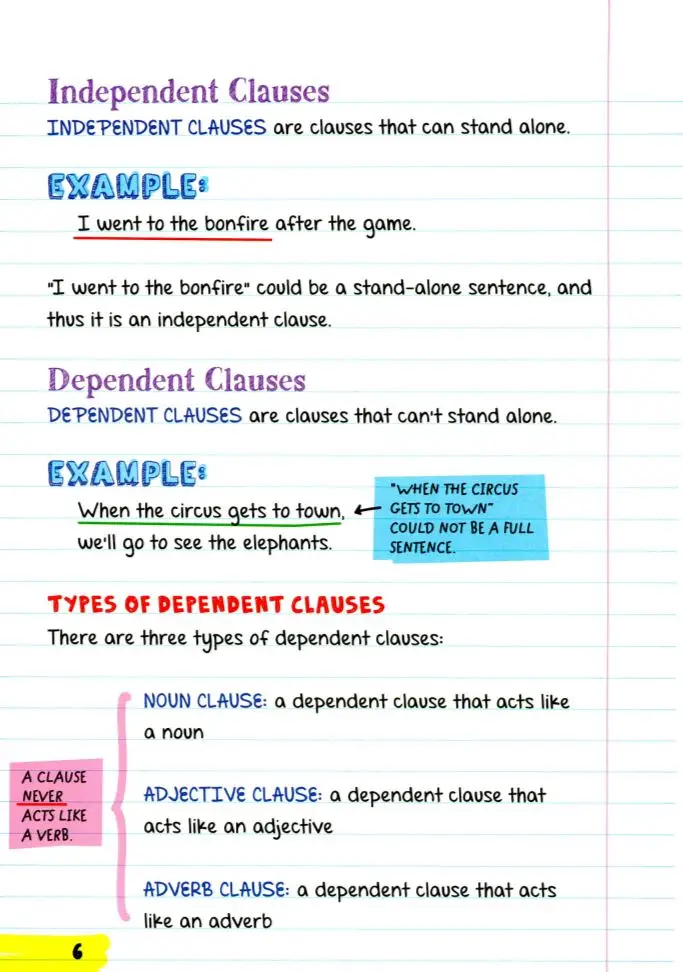 Independent Clauses
INDEPENDENT CLAUSES are clauses that can stand alone.
EXAMPLE:
I went to the bonfire after the game.
"I went to the bonfire" could be a stand-alone sentence, and
thus it is an independent clause.
Dependent Clauses
DEPENDENT CLAUSES are clauses that can't stand alone.
EXAMPLE:
When the circus gets to town,
we'll go to see the elephants.
"WHEN THE CIRCUS
GETS TO TOWN"
COULD NOT BE A FULL
SENTENCE.
TYPES OF DEPENDENT CLAUSES
There are three types of dependent clauses:
A CLAUSE
NEVER
ACTS LIKE
A VERB.
NOUN CLAUSE: a dependent clause that acts like
a noun
ADJECTIVE CLAUSE: a dependent clause that
acts like an adjective
ADVERB CLAUSE: a dependent clause that acts
like an adverb
6